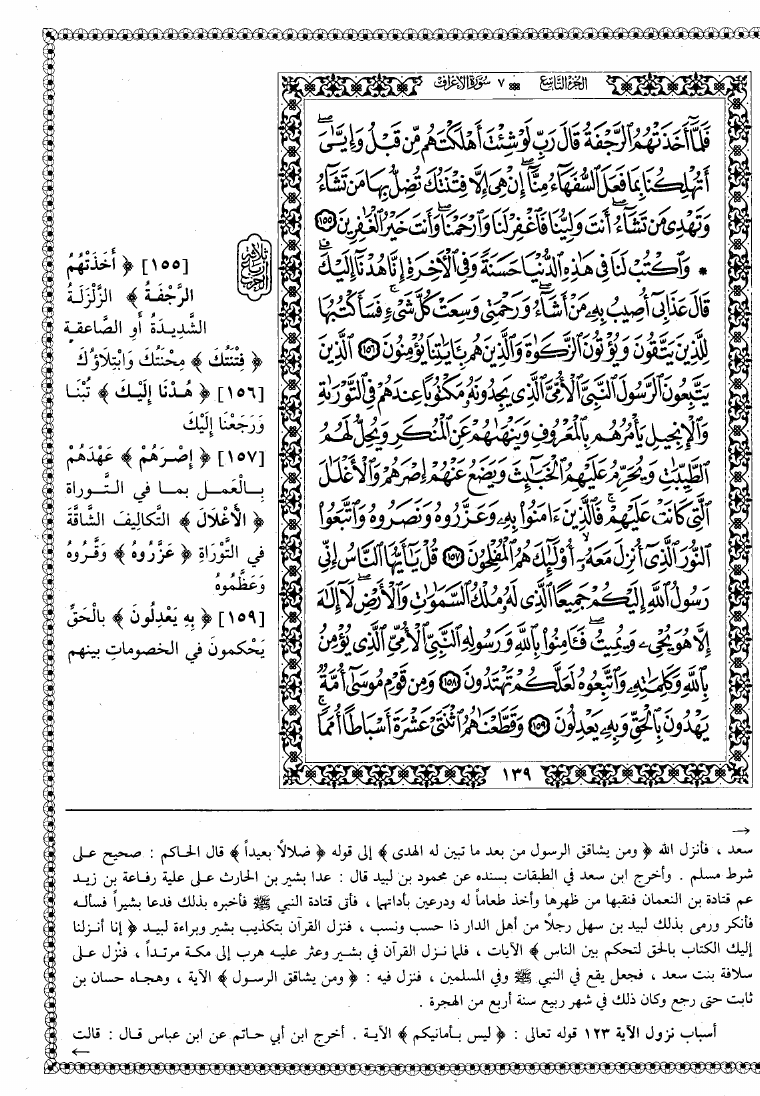 الجزء التاسع ٧ سورة الأعراف
فَلَمَّآ أَخَذَتْهُمُ ٱلرَّجْفَةُ قَالَ رَبِّ لَوْ شِئْتَ أَهْلَكْتَهُم مِّن قَبْلُ وَإِيَّٰىَ
أَتُهْلِكُنَا بِمَا فَعَلَ ٱلسُّفَهَآءُ مِنَّآ إِنْ هِىَ إِلَّا فِتْنَتُكَ تُضِلُّ بِهَا مَن تَشَآءُ
وَتَهْدِى مَن تَشَآءُ أَنتَ وَلِيُّنَا فَٱغْفِرْ لَنَا وَٱرْحَمْنَا وَأَنتَ خَيْرُ ٱلْغَٰفِرِينَ ١٥٥
* وَٱكْتُبْ لَنَا فِى هَٰذِهِ ٱلدُّنْيَا حَسَنَةً وَفِى ٱلْءَاخِرَةِ إِنَّا هُدْنَآ إِلَيْكَ
قَالَ عَذَابِىٓ أُصِيبُ بِهِۦ مَنْ أَشَآءُ وَرَحْمَتِى وَسِعَتْ كُلَّ شَىْءٍ فَسَأَكْتُبُهَا
لِلَّذِينَ يَتَّقُونَ وَيُؤْتُونَ ٱلزَّكَوٰةَ وَٱلَّذِينَ هُم بِـَٔايَٰتِنَا يُؤْمِنُونَ ١٥٦ ٱلَّذِينَ
يَتَّبِعُونَ ٱلرَّسُولَ ٱلنَّبِىَّ ٱلْأُمِّىَّ ٱلَّذِى يَجِدُونَهُۥ مَكْتُوبًا عِندَهُمْ فِى ٱلتَّوْرَىٰةِ
وَٱلْإِنجِيلِ يَأْمُرُهُم بِٱلْمَعْرُوفِ وَيَنْهَىٰهُمْ عَنِ ٱلْمُنكَرِ وَيُحِلُّ لَهُمُ
ٱلطَّيِّبَٰتِ وَيُحَرِّمُ عَلَيْهِمُ ٱلْخَبَٰٓئِثَ وَيَضَعُ عَنْهُمْ إِصْرَهُمْ وَٱلْأَغْلَٰلَ
ٱلَّتِى كَانَتْ عَلَيْهِمْ فَٱلَّذِينَ ءَامَنُوا۟ بِهِۦ وَعَزَّرُوهُ وَنَصَرُوهُ وَٱتَّبَعُوا۟
ٱلنُّورَ ٱلَّذِىٓ أُنزِلَ مَعَهُۥٓ أُو۟لَٰٓئِكَ هُمُ ٱلْمُفْلِحُونَ ١٥٧ قُلْ يَٰٓأَيُّهَا ٱلنَّاسُ إِنِّى
رَسُولُ ٱللَّهِ إِلَيْكُمْ جَمِيعًا ٱلَّذِى لَهُۥ مُلْكُ ٱلسَّمَٰوَٰتِ وَٱلْأَرْضِ لَآ إِلَٰهَ
إِلَّا هُوَ يُحْىِۦ وَيُمِيتُ فَـَٔامِنُوا۟ بِٱللَّهِ وَرَسُولِهِ ٱلنَّبِىِّ ٱلْأُمِّىِّ ٱلَّذِى يُؤْمِنُ
بِٱللَّهِ وَكَلِمَٰتِهِۦ وَٱتَّبِعُوهُ لَعَلَّكُمْ تَهْتَدُونَ ١٥٨ وَمِن قَوْمِ مُوسَىٰٓ أُمَّةٌ
يَهْدُونَ بِٱلْحَقِّ وَبِهِۦ يَعْدِلُونَ ١٥٩ وَقَطَّعْنَٰهُمُ ٱثْنَتَىْ عَشْرَةَ أَسْبَاطًا أُمَمًا
١٣٩
ثلاثة أرباع الحزب
[١٥٥] ﴿ أَخَذَتْهُمُ
الرَّجْفَةُ ﴾ الزَّلْزَلَةُ
الشَّدِيدَةُ أَوِ الصَّاعقة
﴿ فِتْنَتُكَ ﴾ مِحْنَتُكَ وَابْتِلَاؤُكَ
[١٥٦] ﴿ هُدْنَا إِلَيْكَ ﴾ تُبْنَا
وَرَجَعْنَا إِلَيْكَ
[١٥٧] ﴿ إِصْرَهُمْ ﴾ عَهْدَهُمْ
بِالْعَمل بما في التَّوراة
﴿ الأَغْلَالَ ﴾ التَّكالِيفَ الشَّاقَّةَ
في التَّوْرَاةِ ﴿ عَزَّرُوهُ ﴾ وَقَّرُوهُ
وَعَظَّمُوهُ
[١٥٩] ﴿ بِهِ يَعْدِلُونَ ﴾ بالْحَقِّ
يَحْكمونَ في الخصوماتِ بينهم
→
سعد ، فأنزل الله ﴿ ومن يشاقق الرسول من بعد ما تبين له الهدى ﴾ إلى قوله ﴿ ضلالاً بعيداً ﴾ قال الحاكم : صحيح على
شرط مسلم . وأخرج ابن سعد في الطبقات بسنده عن محمود بن لبيد قال : عدا بشير بن الحارث على علية رفاعة بن زيد
عم قتادة بن النعمان فنقبها من ظهرها وأخذ طعاماً له ودرعين بأداتهما ، فأتى قتادة النبي ﷺ فأخبره بذلك فدعا بشيراً فسأله
فأنكر ورمى بذلك لبيد بن سهل رجلاً من أهل الدار ذا حسب ونسب ، فنزل القرآن بتكذيب بشير وبراءة لبيد ﴿ إنا أنزلنا
إليك الكتاب بالحق لتحكم بين الناس ﴾ الآيات ، فلما نزل القرآن في بشير وعثر عليه هرب إلى مكة مرتداً ، فنزل على
سلافة بنت سعد ، فجعل يقع في النبي ﷺ وفي المسلمين ، فنزل فيه : ﴿ ومن يشاقق الرسول ﴾ الآية ، وهجاه حسان بن
ثابت حتى رجع وكان ذلك في شهر ربيع سنة أربع من الهجرة .
أسباب نزول الآية ١٢٣ قوله تعالى : ﴿ ليس بأمانيكم ﴾ الآية . أخرج ابن أبي حاتم عن ابن عباس قال : قالت
←